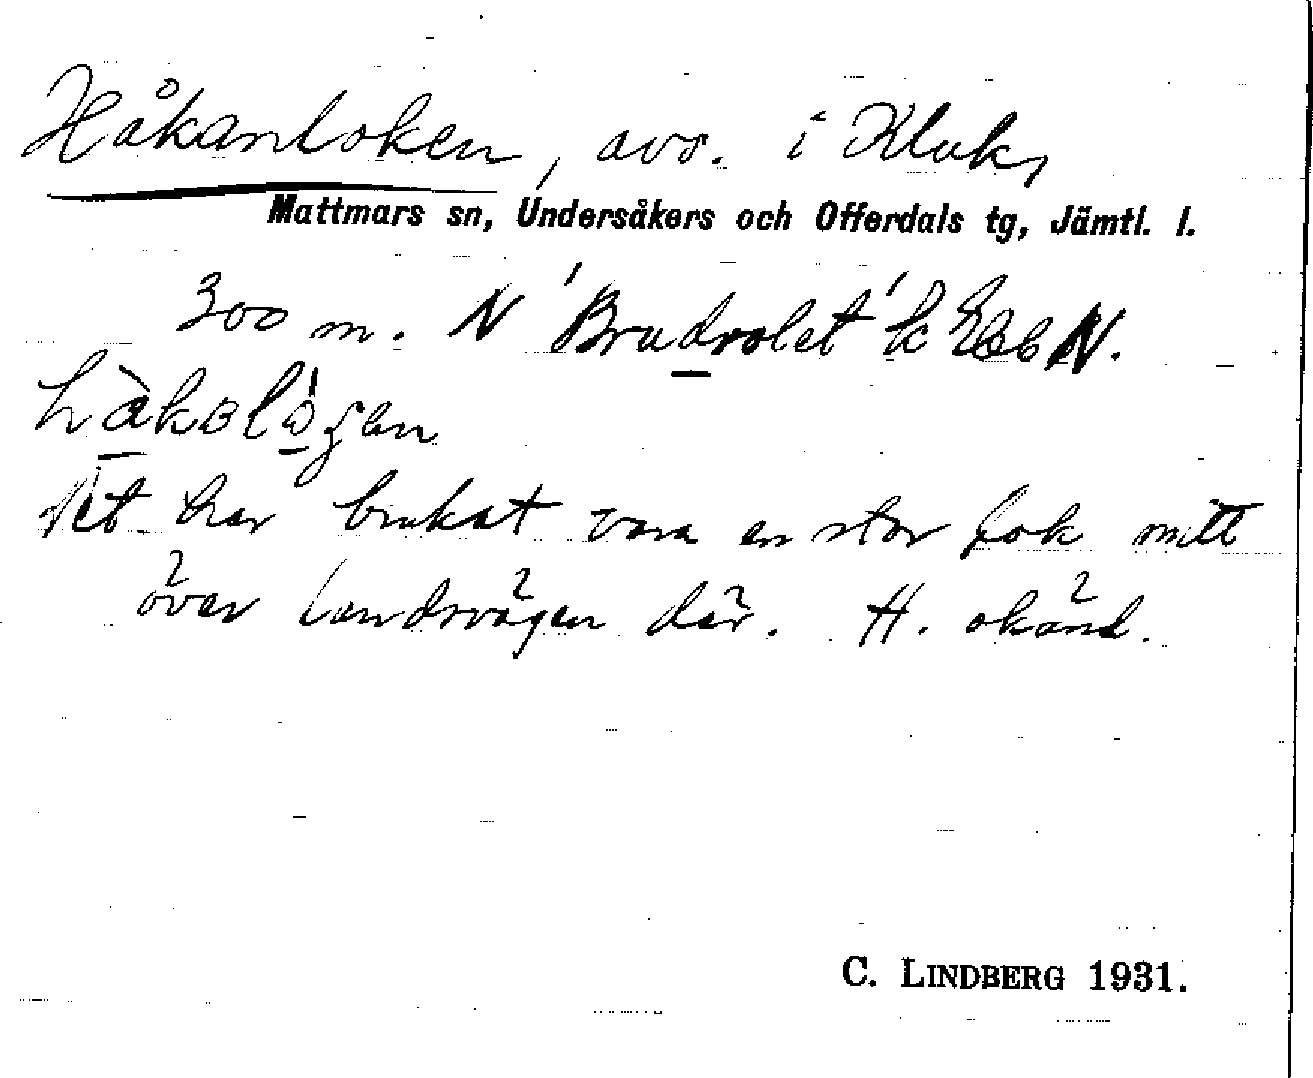 Håkanloken, avs. i Kluk,
Mattmars sn, Undersåkers och Offerdals tg, Jämtl. l.
300 m. N 'Brudvolet' k Ebb N.
håkalógen
Det har brukat vara en stor lok mitt
över landsvägen där. H. okänd.
C. LINDBERG 1931.